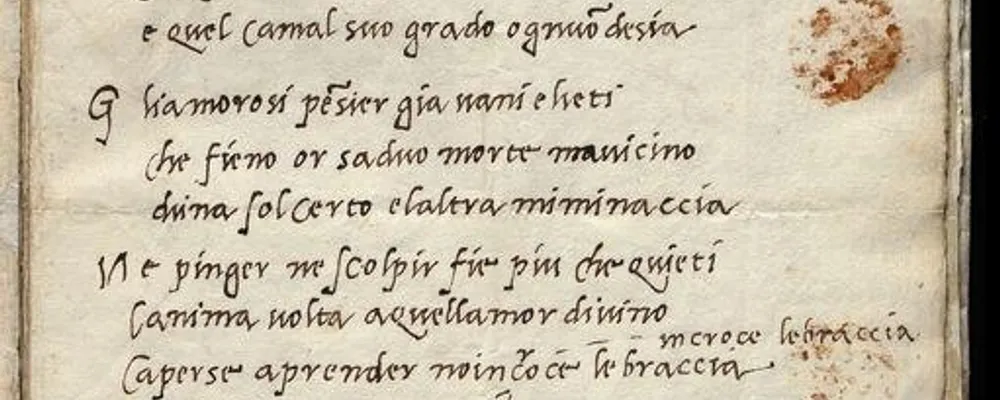 e quel Camal suo grado ognuõ desia
G liamorosi pẽsier gia vani e lieti
che fieno or saduo morte mauicino
duna sol certo elaltra miminaccia
N e pinger ne scolpir fie piu che quieti
Lanima uolta aquellamor diuino
in croce le braccia
Caperse aprender noi le braccia